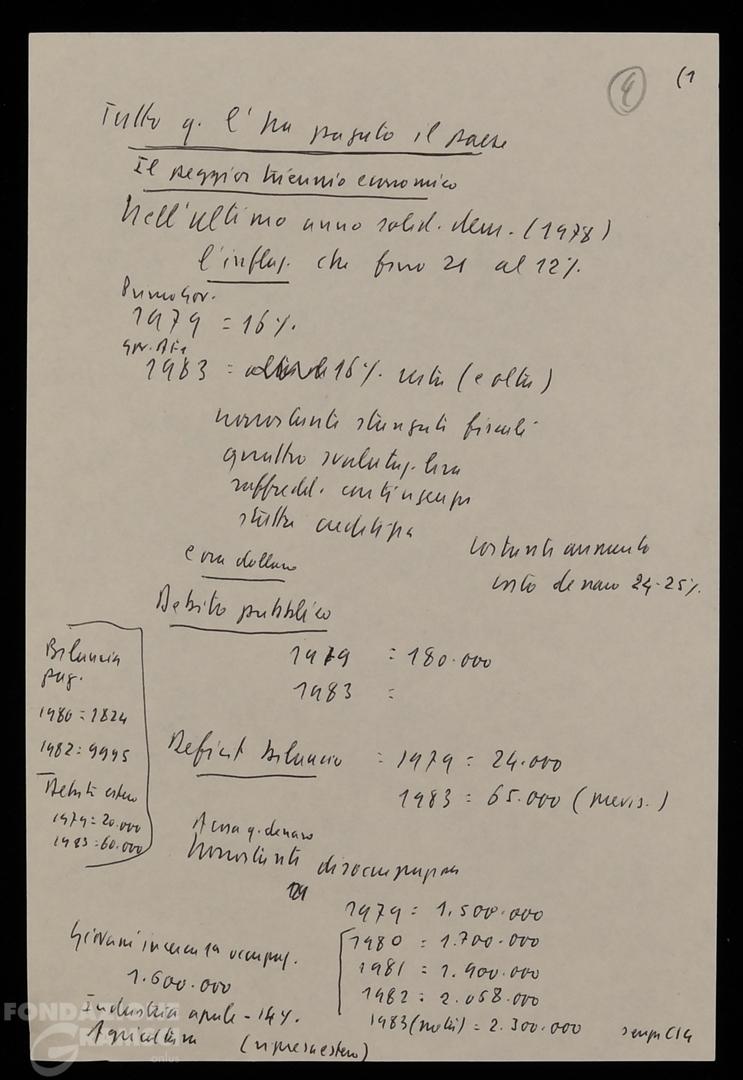 4
(1
Tutto q. l'ha pagato il paese
Il peggior triennio economico
Nell'ultimo anno solid. dem. (1978)
l'inflaz. che fino 21 al 12%.
Primo Gov.
1979 = 16%.
1983 = 16%. resta (e oltre)
nonostante stangate fiscali
quattro svalutaz. lira
raffredd. contingenza
stretta creditizia
e ora dollaro
costante aumento
costo denaro 24-25%.
Debito pubblico
1979 = 180.000
1983 =
Bilancia
pag.
1980 = 1824
1982 = 9995
Debiti estero
1979 = 20.000
1983 = 60.000
Deficit Bilancio = 1979 = 24.000
1983 = 65.000 (previs.)
A cosa q. denaro
Nonostante disoccupazione
1979 = 1.500.000
1980 = 1.700.000
1981 = 1.900.000
1982 = 2.068.000
1983 = 2.300.000 senza CIG
Giovani in cerca 1a occupaz.
1.600.000
Industria aprile - 14%.
Agricoltura
(ripresa estero)
FONDAZIONE
GRAMSCI
onlus